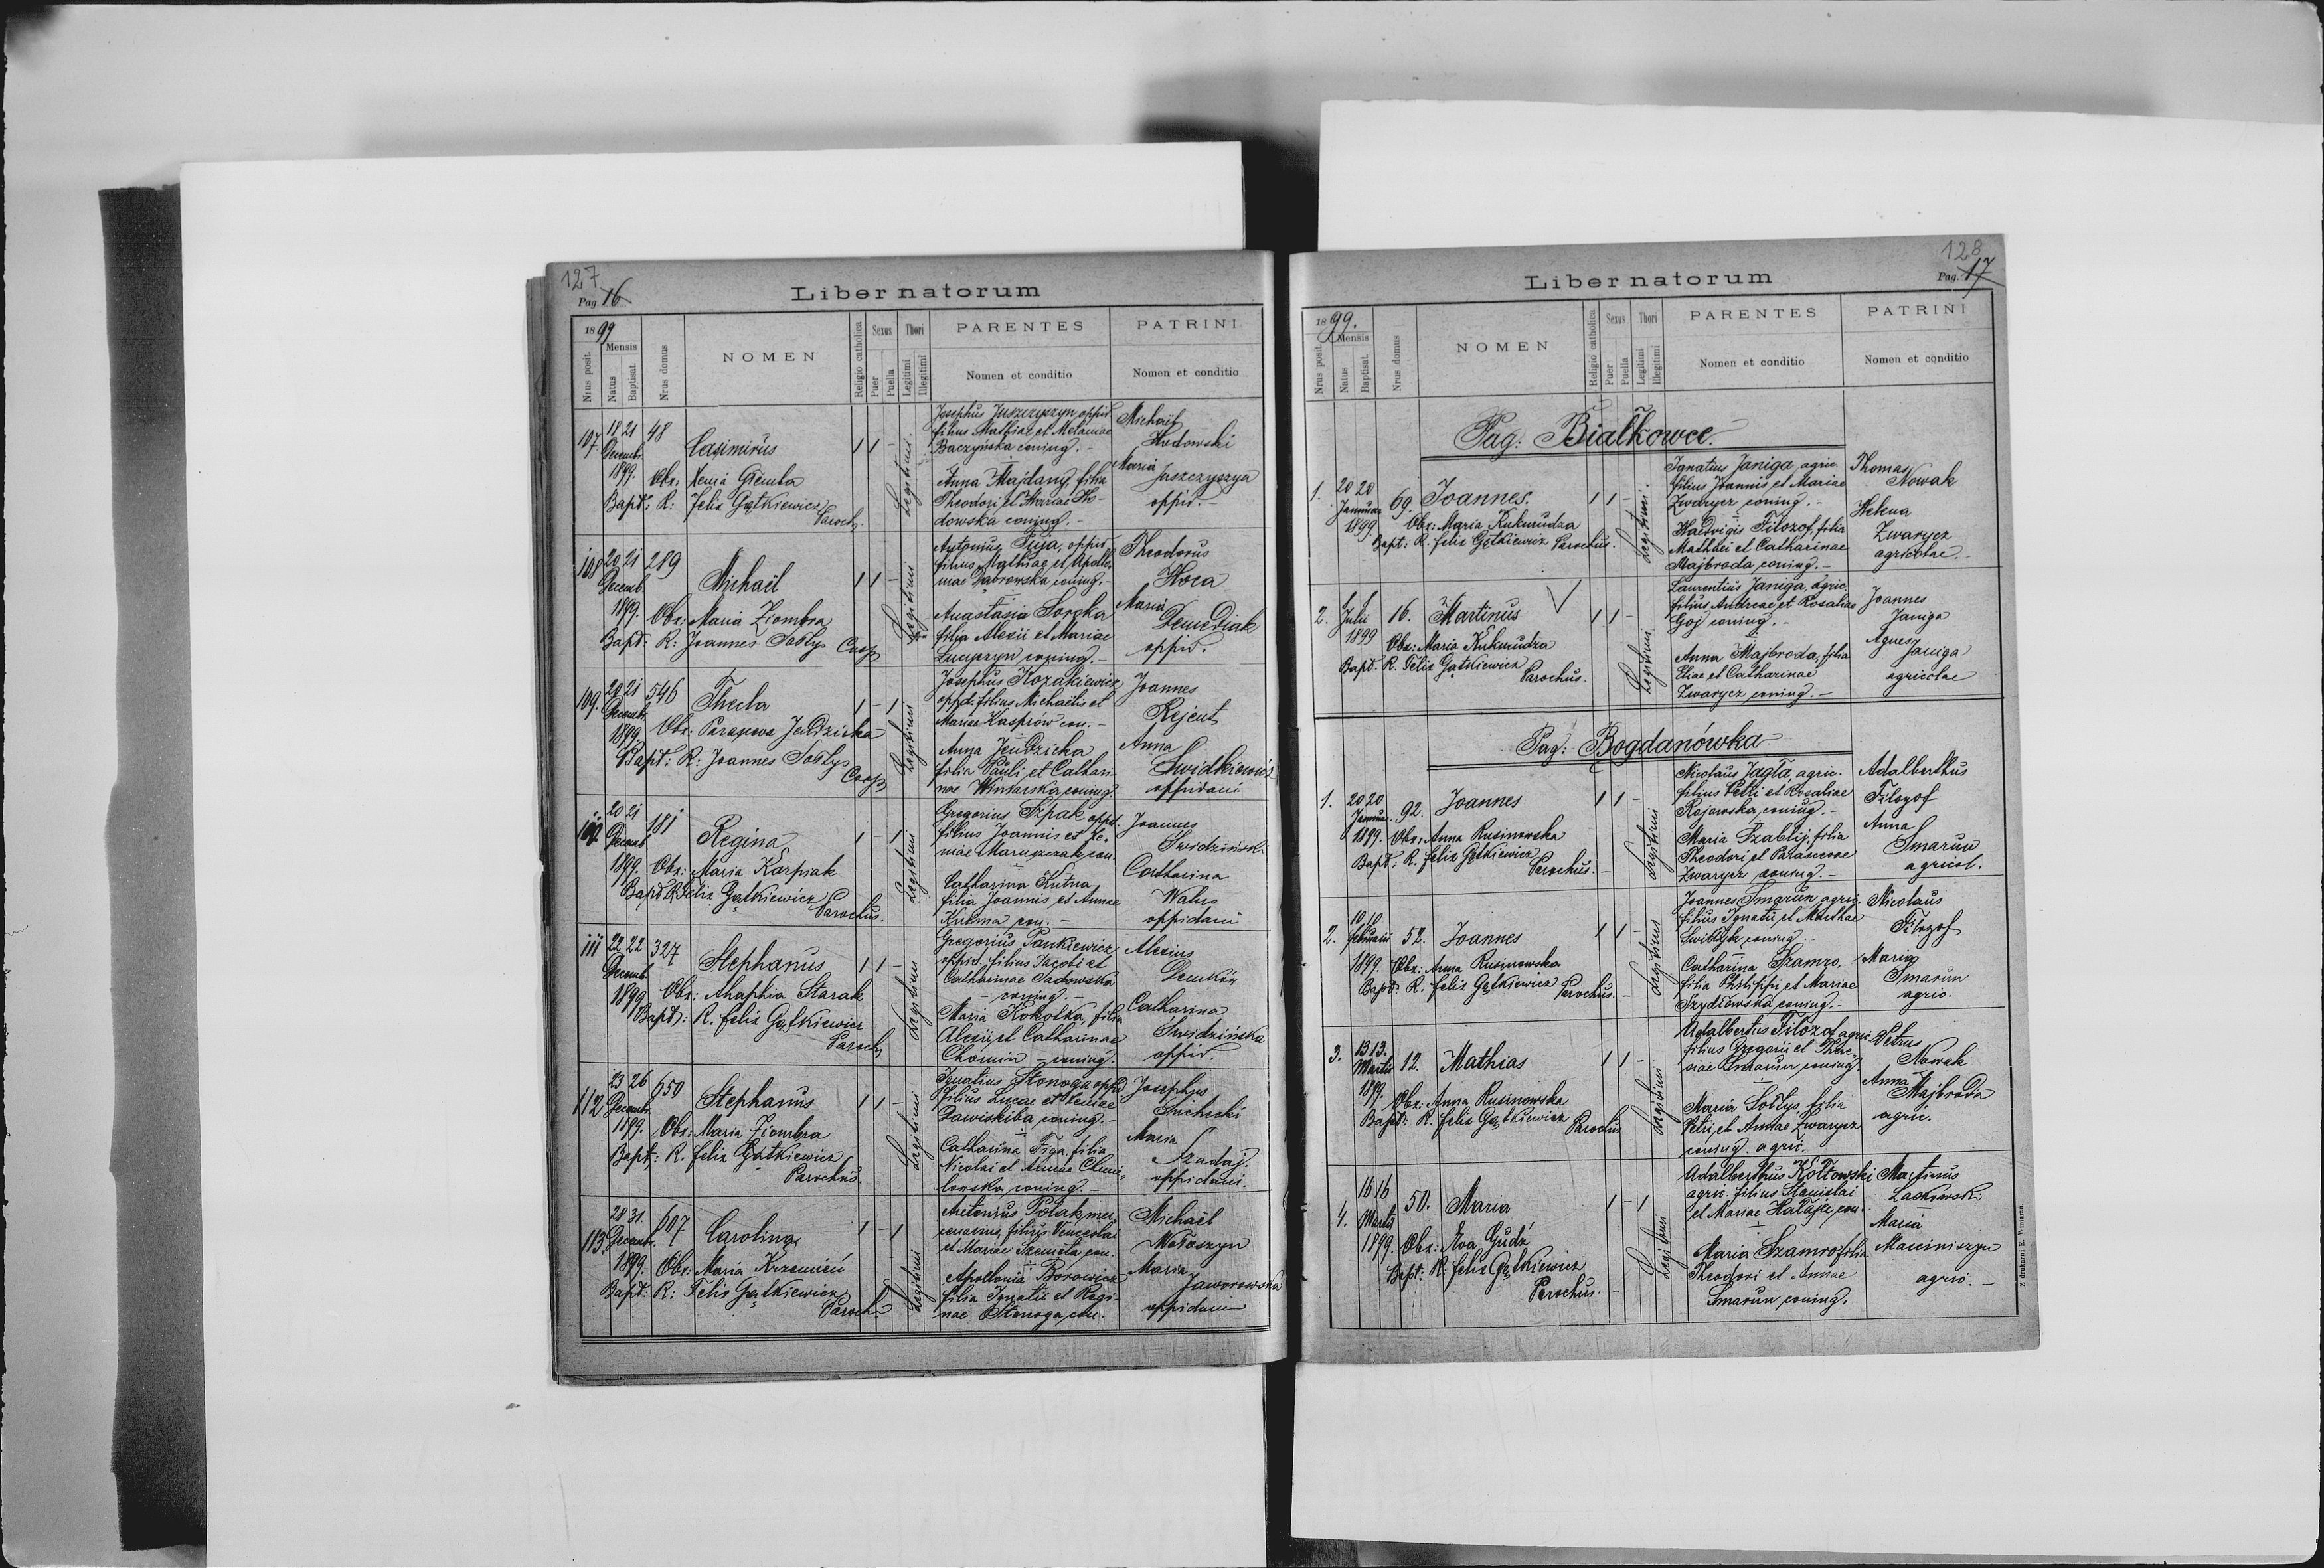 127
Pag. 16
Liber natorum
1899
Nrus posit.
Mensis
Natus
Baptisat.
Nrus domus
NOMEN
Religio catholica
Sexus
Puer
Puella
Thori
Legitimi
Illegitimi
PARENTES
Nomen et conditio
PATRINI
Nomen et conditio
107.
18 21
Decembr.
1899.
48
Casimirus
1 1 -
Legitimi.
Obs: Xenia Giemba
Bapt: R: Felix Gątkiewicz
Paroch.
Josephus Juszczyszyn oppid.
filius Mathiae et Melaniae
Baczyńska coniug. -
Anna Majdany, filia
Theodori et Mariae Ho-
dowska coniug. -
Michaël
Hodowski
Maria
Juszczyszyn
oppid. -
108
20 21
Decemb.
1899.
289
Michaël
1 1 -
Legitimi
Obs: Maria Ziombra
Bapt. R: Joannes Sołtys Coop
Antonius Puja, oppid.
filius Mathiae et Apollo-
niae Dąbrowska, coniug. -
Anastasia Soroka
filia Alexii et Mariae
coniug. -
Theodorus
Hoca
Maria
Demedjuk
oppid.
109.
20 21
Decembr.
1899.
546
Thecla
1 - 1
Legitimi
Obs: Parasceva Jendzicka
Bapt: R: Joannes Sołtys
Coop
Josephus Kozakiewicz
oppid. filius Michaëlis et
Mariae Kasprow con. -
Anna Jendzicka
filia Pauli et Cathari-
nae Winiarska, coniug.
Joannes
Rejent
Anna
oppidani
110.
20 21
Decemb
1899.
181
Regina
1 - 1
Legitimi
Obs: Maria Karpiak
Bapt. R. Felix Gątkiewicz
Parochus.
Gregorius Szpak oppid.
filius Joannis et Xe-
niae Maruszczak con.
Catharina Kutna
filia Joannis et Annae
Kuzma con. -
Joannes
Swidziński
Catharina
Walus
oppidani
111
22 22
Decemb
1899
327
Stephanus
1 1 -
Legitimi
Obs: Ahaphia Starak
Bapt: R. Felix Gątkiewicz
Paroch
Gregorius Pankiewicz
oppid. filius Jacobi et
Catharinae Sadowska
- coniug. -
Maria Kokotka, filia
Alexii et Catharinae
Chomin - coniug.
Alexius
Demków
Catharina
Świdzińska
oppid.
112
23 26
Decembr.
1899.
650
Stephanus
1 1 -
Legitimi
Obs: Maria Ziombra
Bapt: R. Felix Gątkiewicz
Parochus.
Ignatius Stonoga oppid
filius Lucae et Xeniae
coniug. -
Catharina Figa, filia
Nicolai et Annae Chmi-
lowska, coniug. -
Josephus
Suchecki
Maria
Szadaj.
oppidani.
113.
28 31.
Decembr.
1899.
607
Carolina
1 - 1
Legitimi
Obs: Maria Krzemień
Bapt: R: Felix Gątkiewicz
Paroch.
Antonius Polak mer-
cenarius, filius Venceslai
et Mariae Szemeta, con.
Apollonia Borowicz
filia Ignatii et Regi-
nae Stonoga, con.
Michaël
Wołoszyn
Maria
Jaworowska
oppidani
128
Pag. 17
Liber natorum
1899.
Nrus posit.
Mensis
Natus
Baptisat.
Nrus domus
NOMEN
Religio catholica
Sexus
Puer
Puella
Thori
Legitimi
Illegitimi
PARENTES
Nomen et conditio
PATRINI
Nomen et conditio
Pag: Białkowce.
1.
20 20
Januar.
1899.
69.
Joannes.
1 1 -
Legitimi.
Obs: Maria Kukurudza
Bapt: R. Felix Gątkiewicz Parochus.
Ignatius Janiga, agric.
filius Joannis et Mariae
Zwarycz coniug. -
Haedvigis Filozof, filia
Mathei et Catharinae
Majbroda, coniug. -
Thomas
Nowak
Helena
Zwarycz
agricolae. -
2.
Julii
1899
16.
Martinus
1 1 -
Legitimi
Obs: Maria Kukurudza
Bapt. R. Felix Gątkiewicz
Parochus.
Laurentius Janiga agric.
filius Andreae et Rosaliae
Goj coniug. -
Anna Majbroda, filia
Eliae et Catharinae
Zwarycz, coniug. -
Joannes
Janiga
Agnes
Janiga
agricolae
Pag: Bogdanówka
1.
20 20
Januar.
1899.
92.
Joannes
1 1 -
Legitimi
Obs: Anna Rusinowska
Bapt: R. Felix Gątkiewicz
Parochus. -
Nicolaus Jagła, agric.
filius Petri et Rosaliae
Rajewska, coniug. -
Maria Szablij, filia
Theodori et Parasceve
Zwarycz coniug. -
Adalberthus
Filozof
Anna
Smarun
agricol.
2.
10 10
februarii
1899.
52.
Joannes
1 1 -
Legitimi
Obs: Anna Rusinowska
Bapt: R. Felix Gątkiewicz Parochus. -
Joannes Smarun agric.
filius Ignatii, et Marthae
coniug.
Catharina Szamro,
filia Philippi et Mariae
Szydłowska, coniug. -
Nicolaus
Filozof
Maria
Smarun
agric.
3.
13 13.
Martii
1899.
12.
Mathias
1 1 -
Legitimi
Obs: Anna Rusinowska
Bapt: R. Felix Gątkiewicz
Parochus
Adalbertus Filozof agric.
filius Gregorii et There-
siae Smarun coniug.
Maria Sołtys, filia
Petri, et Annae Zwarycz
coniug. agric.
Petrus
Nowak
Anna
Majbroda
agric.
4.
16 16
Martii
1899.
50.
Maria
1 - 1
Legitimi
Obs: Eva Gudź
Bapt: R: Felix Gątkiewicz
Parochus. -
Adalberthus Kołtowski
agric. filius Stanislai
et Mariae con.
Maria Szamro filia
Theodori et Annae
Smarun, coniug.
Martinus
Laskowski
Maria
Marciniszyn
agric. -
Z drukarni E. Winiarza.